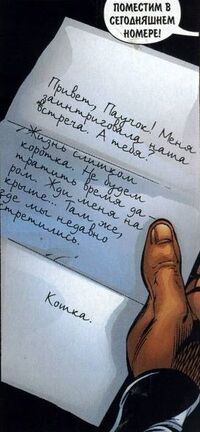 ПОМЕСТИМ В
СЕГОДНЯШНЕМ
НОМЕРЕ!
Привет, Паучок! Меня
заинтриговала наша
встреча. А тебя?
Жизнь слишком
коротка. Не будем
тратить время да-
ром. Жди меня на
крыше... Там же,
где мы недавно
встретились.
Кошка.